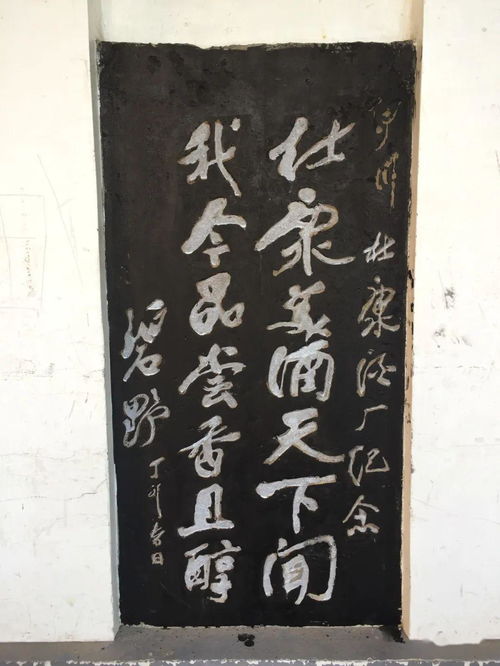 伊川 杜康酒厂纪念
杜康美酒天下闻
我今品尝香且醇
碧野
丁卯春日